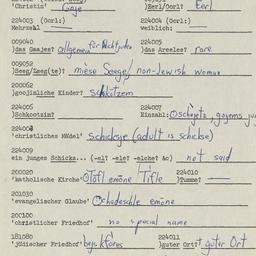 'Christin' Goje )Eerl/Oorl? Eerl
224003 (Oorl:) 224004 (Oorl:)
Mehrzahl weiblich:
009040 225005
)das Gaajes? allgemein für Nichtjuden )das Areles? rare
009052
)Seeg/Zeeg(te)? miese Seege / non-Jewish woman
200052
'goojische Kinder' Schkotzem
224005 224007
)Schkootzim? Einzahl:
'christliches Mädel' schickse (adult is schickse)
224009
ein junges Schicks... (-el? -ele? -elche? &c) not said
200020 224010
'katholische Kirche' Tifle )Tumme?
201030
'evangelischer Glaube'
20C100
'christlicher Friedhof' no special name
181080 224011
'jüdischer Friedhof' )guter Ort? guter Ort